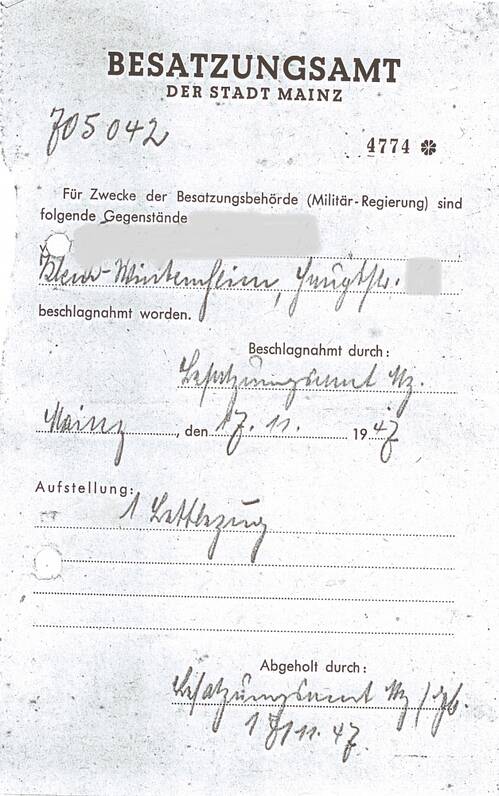 BESATZUNGSAMT
DER STADT MAINZ
705042
4774
Für Zwecke der Besatzungsbehörde (Militär-Regierung) sind
folgende Gegenstände
Klein-Winternheim, Hauptstr.
beschlagnahmt worden.
Beschlagnahmt durch:
Besatzungsamt Mz.
Mainz, den 17. 11. 1947
Aufstellung:
1 Bettbezug
Abgeholt durch:
Besatzungsamt Mz /
17/11. 47.